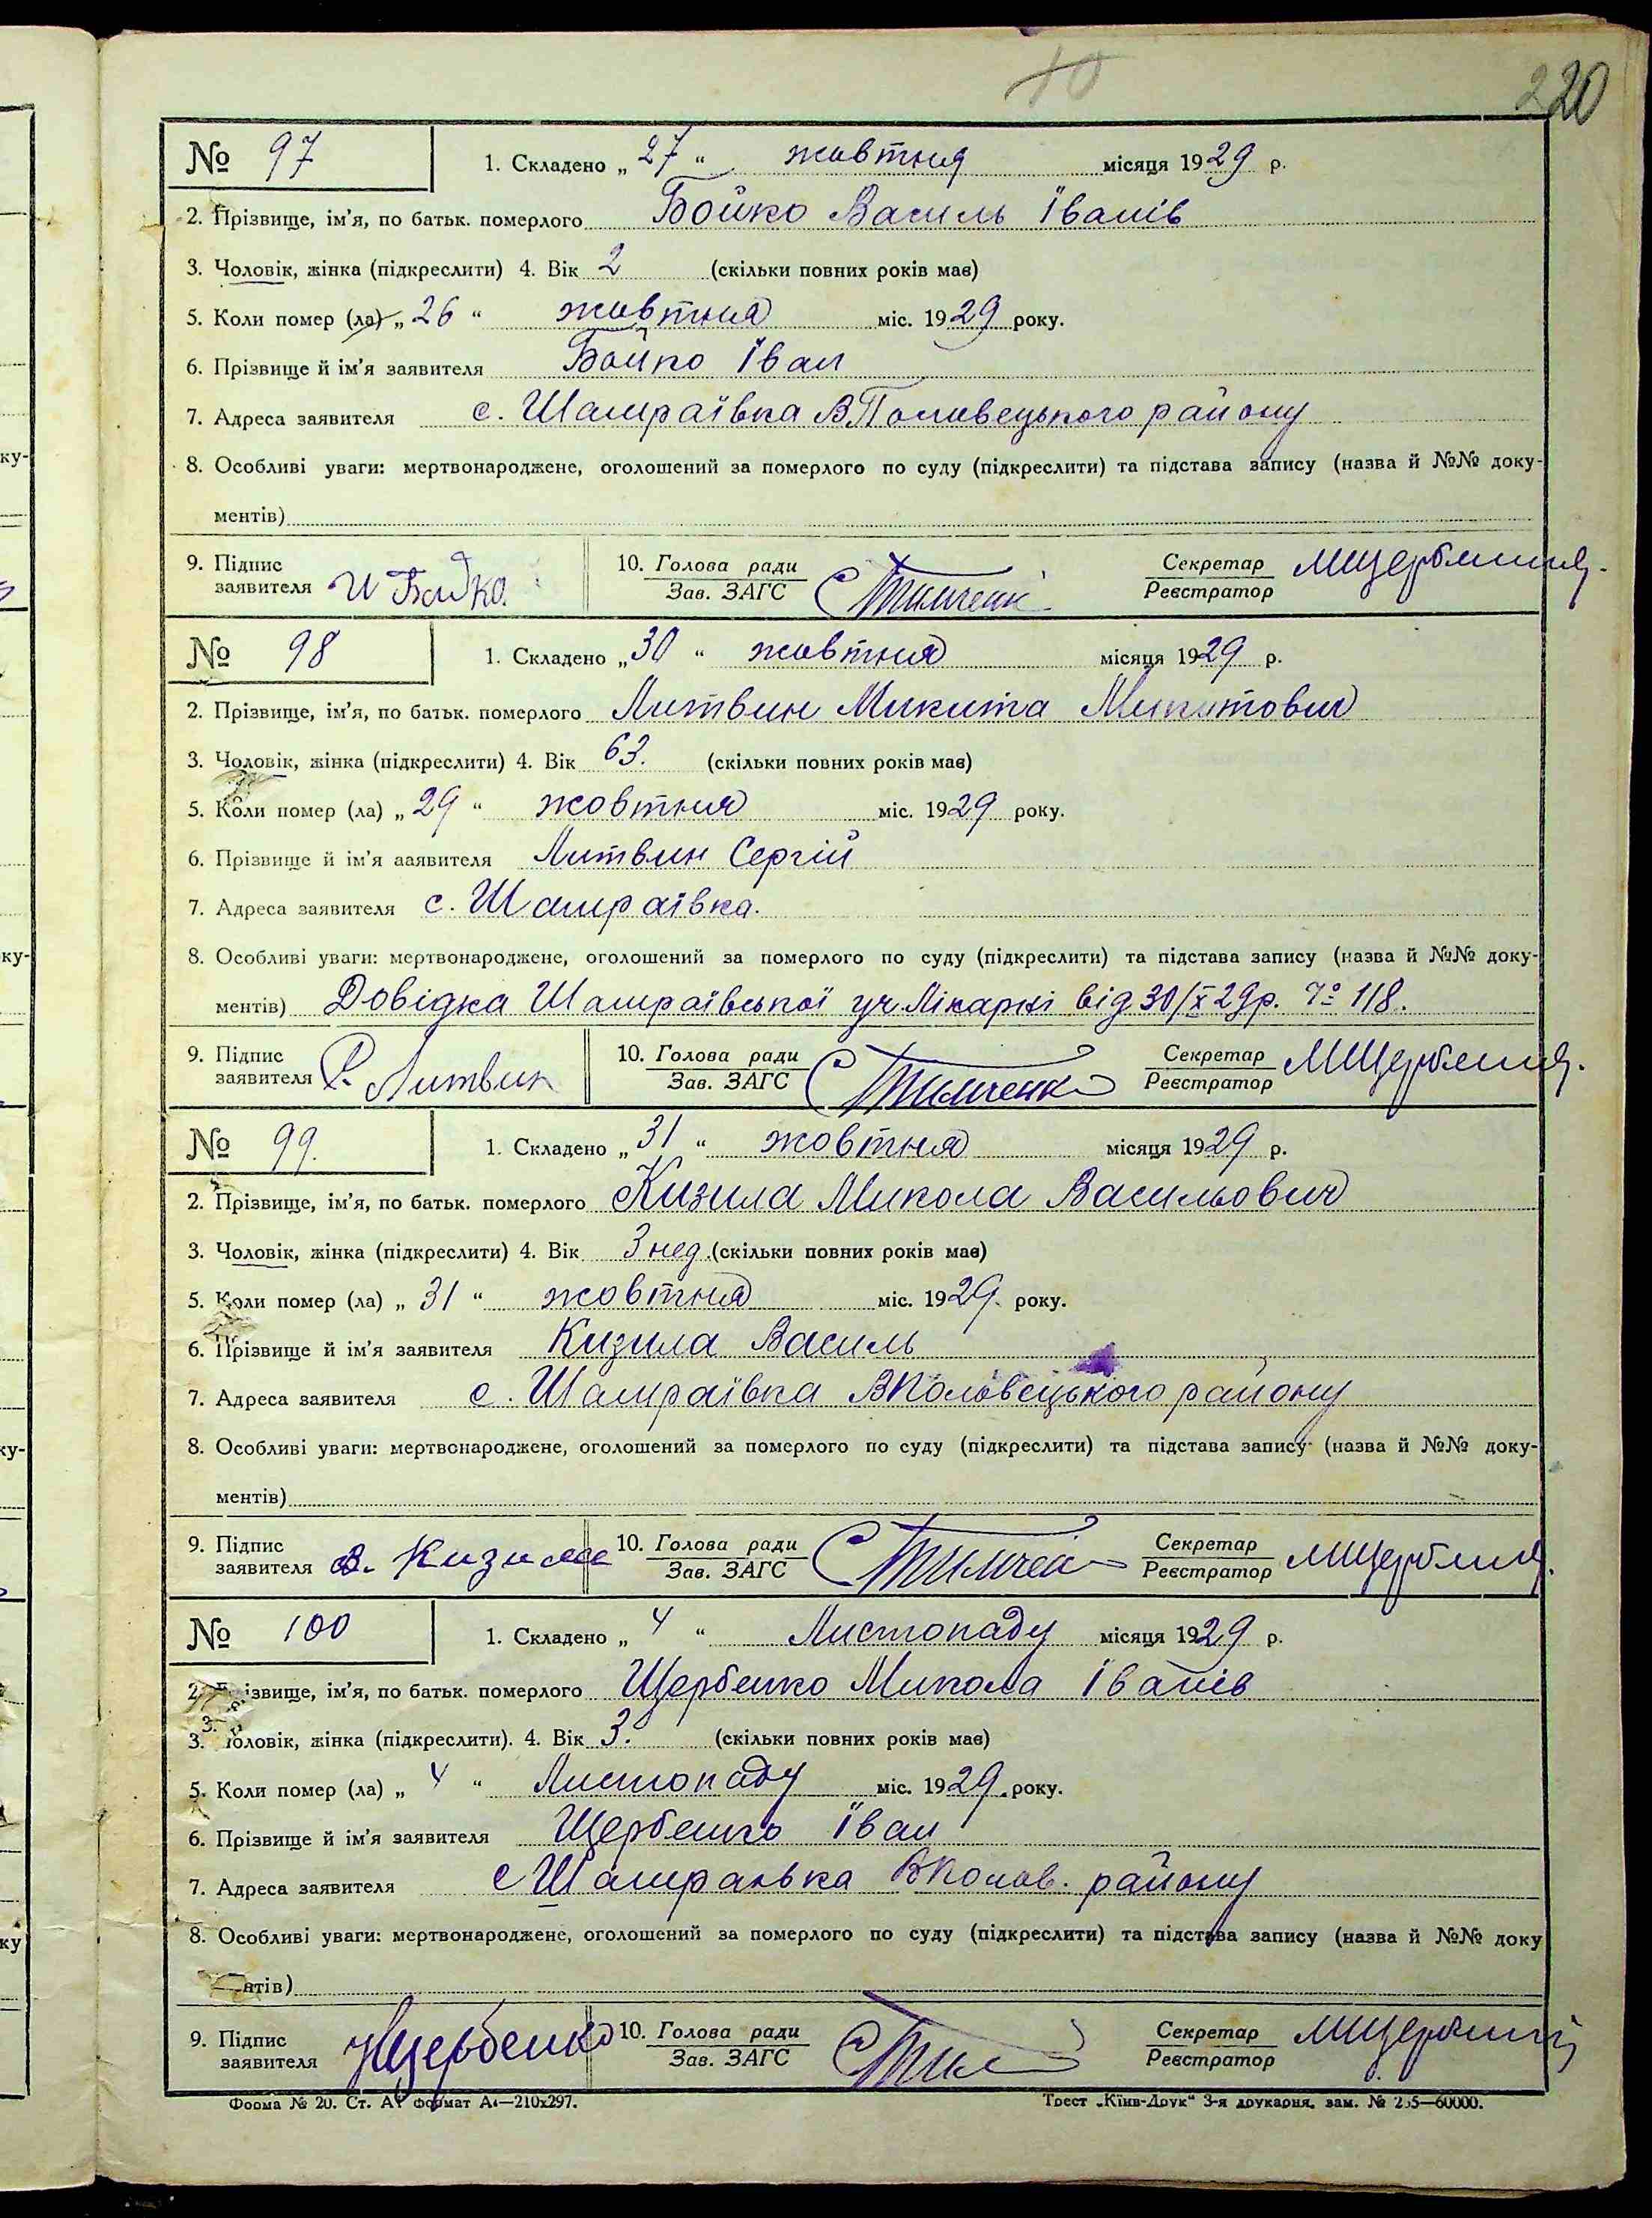 10
220
№ 97 1. Складено „ 27 “ жовтня місяця 1929 р.
2. Прізвище, ім'я, по батьк. померлого Бойко Василь Іванів
3. Чоловік, жінка (підкреслити) 4. Вік 2 (скільки повних років має)
5. Коли помер (ла) „ 26 “ жовтня міс. 1929 року.
6. Прізвище й ім'я заявителя Бойко Іван
7. Адреса заявителя с. Шамраївка В.Половецького району
8. Особливі уваги: мертвонароджене, оголошений за померлого по суду (підкреслити) та підстава запису (назва й №№ доку-
ментів)
9. Підпис заявителя И Бойко. 10. Голова ради Зав. ЗАГС С Тимченк Секретар Реєстратор
№ 98 1. Складено „ 30 “ жовтня місяця 1929 р.
2. Прізвище, ім'я, по батьк. померлого Литвин Микита Микитович
3. Чоловік, жінка (підкреслити) 4. Вік 63. (скільки повних років має)
5. Коли помер (ла) „ 29 “ жовтня міс. 1929 року.
6. Прізвище й ім'я ааявителя Литвин Сергій
7. Адреса заявителя с. Шамраївка.
8. Особливі уваги: мертвонароджене, оголошений за померлого по суду (підкреслити) та підстава запису (назва й №№ доку-
ментів) Довідка Шамраївської уч. Лікарні від 30/X 29р. № 118.
9. Підпис заявителя Литвин 10. Голова ради Зав. ЗАГС С Тимченко Секретар Реєстратор
№ 99. 1. Складено „ 31 “ жовтня місяця 1929 р.
2. Прізвище, ім'я, по батьк. померлого Кизила Микола Васильович
3. Чоловік, жінка (підкреслити) 4. Вік 3 нед. (скільки повних років має)
5. Коли помер (ла) „ 31 “ жовтня міс. 1929. року.
6. Прізвище й ім'я заявителя Кизила Василь
7. Адреса заявителя с. Шамраївка ВПоловецького району
8. Особливі уваги: мертвонароджене, оголошений за померлого по суду (підкреслити) та підстава запису (назва й №№ доку-
ментів)
9. Підпис заявителя В. Кизила 10. Голова ради Зав. ЗАГС С Тимчен Секретар Реєстратор
№ 100 1. Складено „ 4 “ Листопаду місяця 1929 р.
2. Прізвище, ім'я, по батьк. померлого Щербенко Микола Іванів
3. Чоловік, жінка (підкреслити). 4. Вік 3. (скільки повних років має)
5. Коли помер (ла) „ 4 “ Листопаду міс. 1929. року.
6. Прізвище й ім'я заявителя Щербенко Іван
7. Адреса заявителя с Шамраївка ВПолов. району
8. Особливі уваги: мертвонароджене, оголошений за померлого по суду (підкреслити) та підстава запису (назва й №№ доку
ментів)
9. Підпис заявителя Щербенко 10. Голова ради Зав. ЗАГС Секретар Реєстратор
Форма № 20. Ст. А4 формат А4—210х297. Трест „Київ-Друк“ 3-я друкарня, зам. № 255—60000.